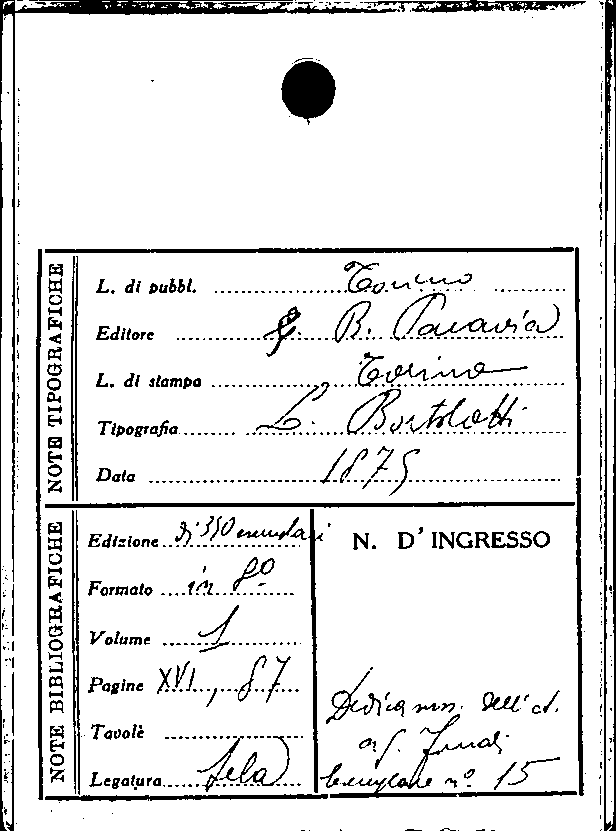 NOTE TIPOGRAFICHE
L. di pubbl. Torino
Editore G. B. Paravia
L. di stampa Torino
Tipografia L. Bortolotti
Data 1875
NOTE BIBLIOGRAFICHE
Edizione di 350 esemplari
Formato in 8º
Volume 1
Pagine XVI, 87
Tavole
Legatura tela
N. D' INGRESSO
Dedica mn. dell'A.
Esemplare nº 15